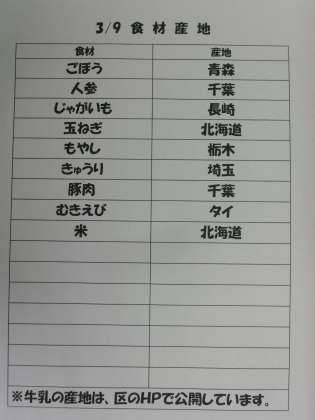 3/9 食材産地
食材 産地
ごぼう 青森
人参 千葉
じゃがいも 長崎
玉ねぎ 北海道
もやし 栃木
きゅうり 埼玉
豚肉 千葉
むきえび タイ
米 北海道
※牛乳の産地は、区のHPで公開しています。